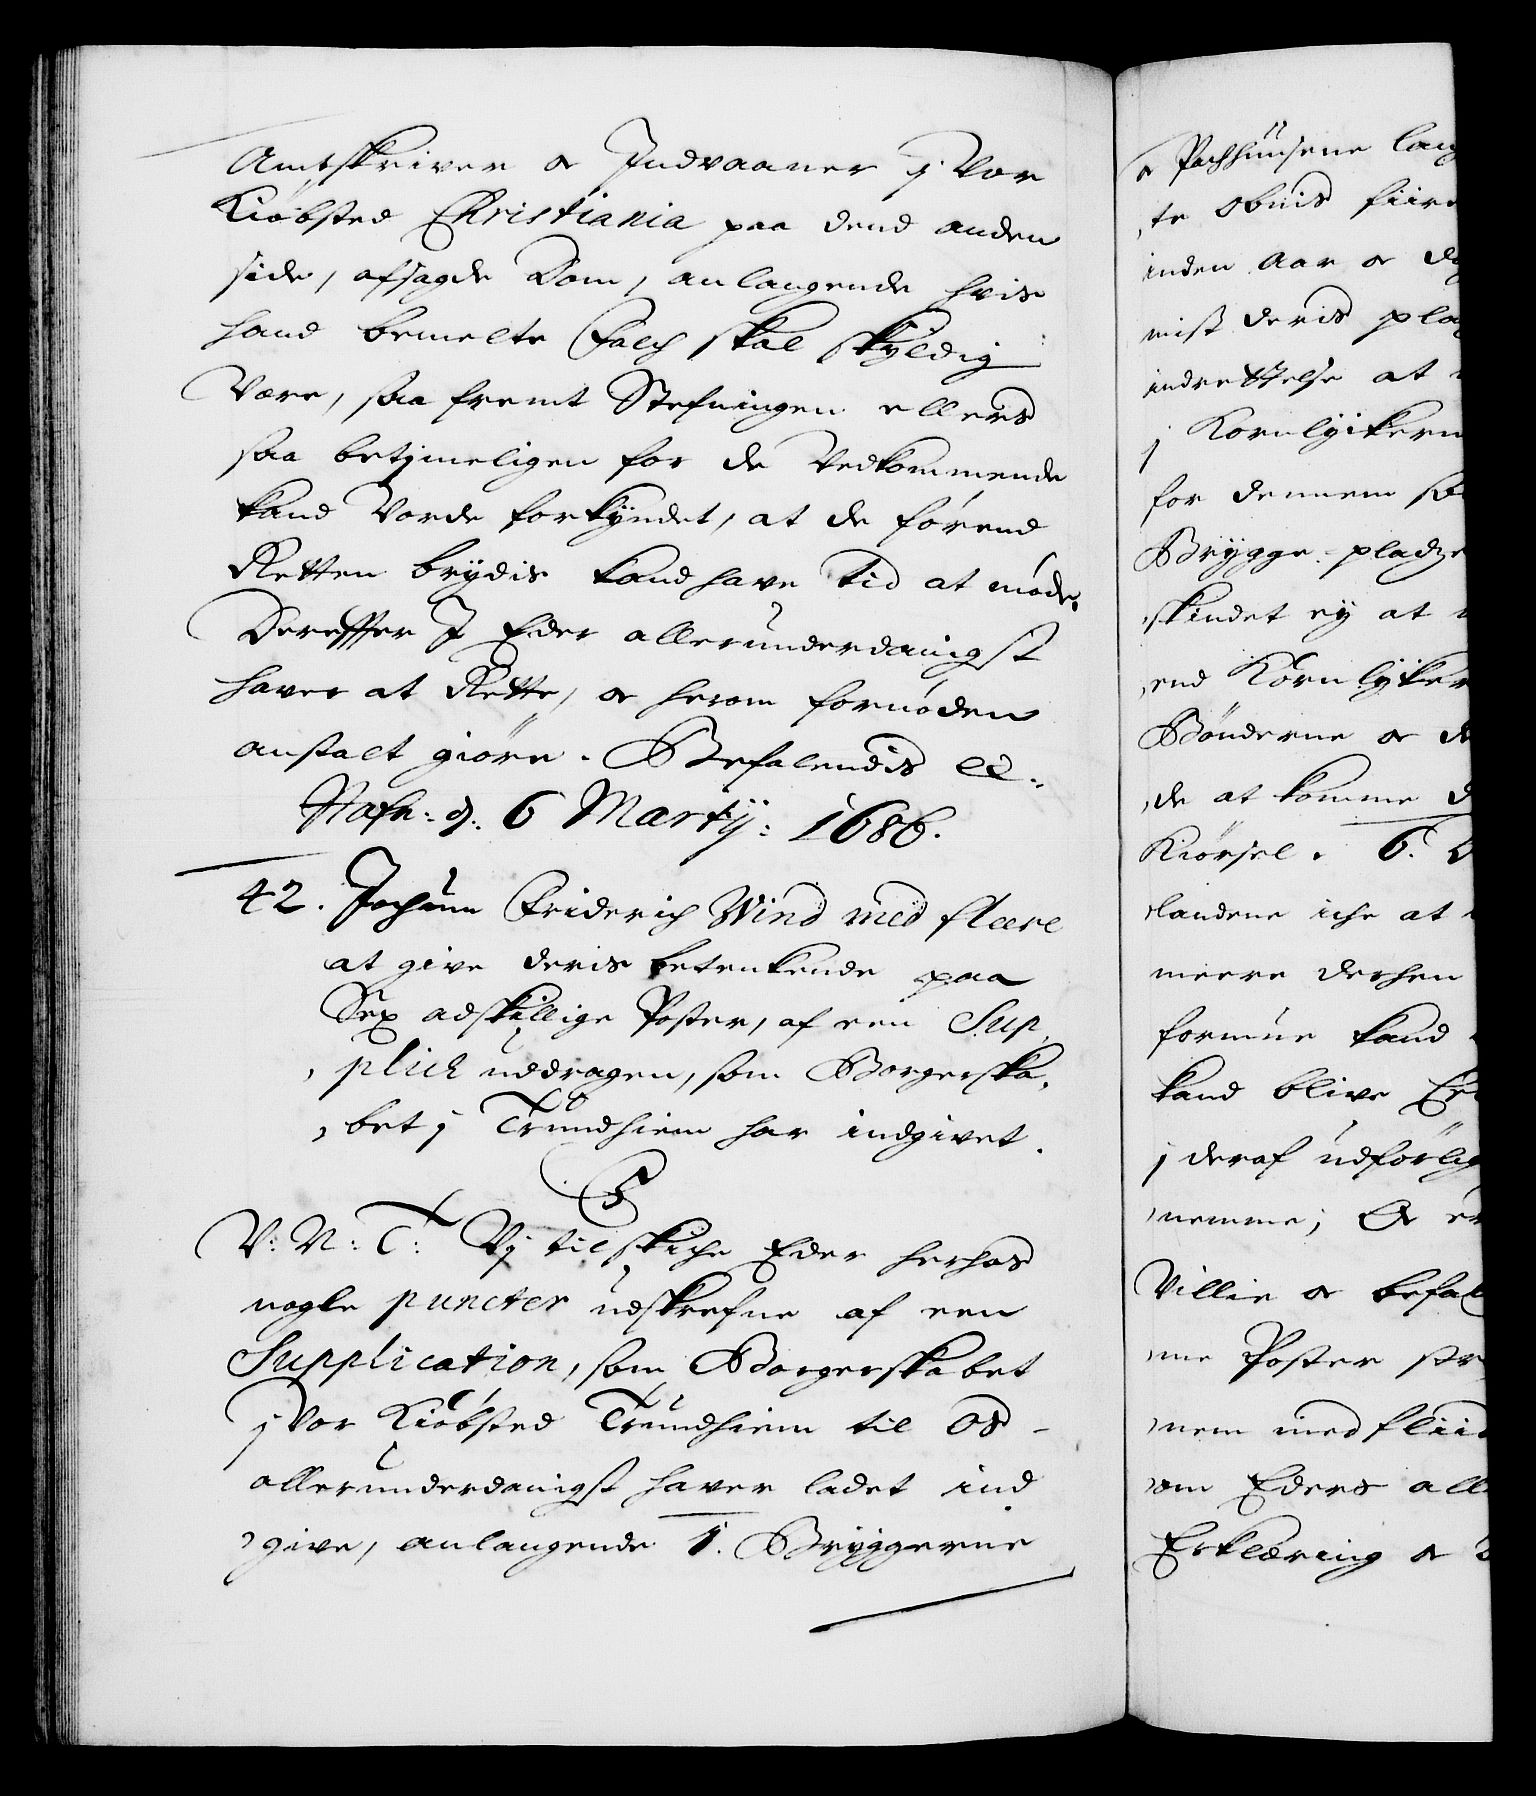 Amtskriver oc Indvaaner j Vor
Kiøbsted Christiania paa dend anden
side, afsagde Dom, anlangende hvis
hand bemelte Falch skal skyldig
være, saa fremt Stefningen ellers
saa betjmeligen for de Vedkommende
kand Vorde forkyndet, at de førend
Retten brydis kand have tid at møde.
Dereffter I Eder allerunderdanigst
haver at Rette, oc herom fornøden
anstalt giøre. Befalendis etc.
Hafn: d: 6 Martij: 1686.
42. Johann Friderich Wind med fleere
at give deris betenkende paa
Sex adskillige Poster, af een Sup,
,plich uddragen, som Borgerska,
,bet j Trundhiem har indgivet.
C5
V: N: T: Vj tilskiche Eder herhos
nogle puncter udskrefne af een
Supplication, som Borgerskabet
j Vor Kiøbsted Trundhiem til Os
allerunderdanigst haver ladet ind
,give, anlangende 1. Bryggerne
oc Pachhuusene
,te
inden Aar oc
mist deris
indrettelse at
j
for dennem
Brygge-pladze
skindet ey at
,end
Bønderne oc
,de at komme
Kiørsel. 6.
landene iche at
meere derhen
formue kand
kand blive
j deraf udførlig
,nemme; Oc
Villie oc befal
,me Poster
,nem med fliid
,om Eders all
Erklæring oc